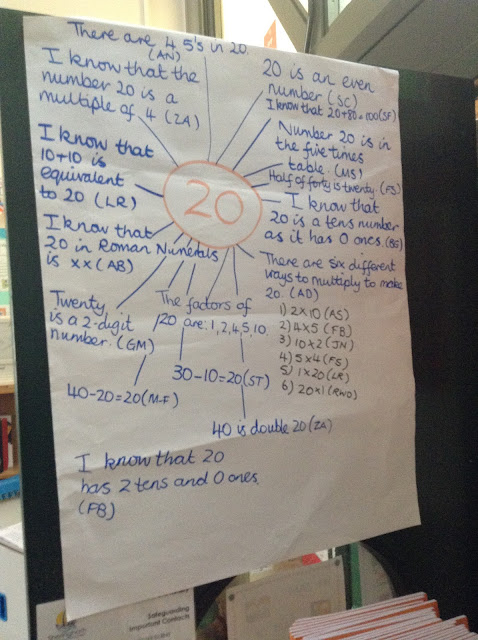 There are 4 5's in 20.
(AN)
I know that the
number 20 is a
multiple of 4 (ZA)
20 is an even
number (SC)
I know that 20+80=100(SF)
I know that
10+10 is
equivalent
to 20 (LR)
Number 20 is in
the five times
table. (MS)
Half of forty is twenty. (FS)
20
I know that
20 is a tens number
as it has 0 ones. (BG)
I know that
20 in Roman Numerals
is xx (AB)
There are six different
ways to multiply to make
20. (AD)
1) 2x10 (AS)
2) 4x5 (FB)
3) 10x2 (JN)
4) 5x4 (FS)
5) 1x20 (LR)
6) 20x1 (RWO)
Twenty
is a 2-digit
number. (GM)
The factors of
20 are: 1, 2, 4, 5, 10
40-20=20(M-F)
30-10=20(ST)
40 is double 20 (ZA)
I know that 20
has 2 tens and 0 ones.
(FB)
Safeguarding
Important Contacts